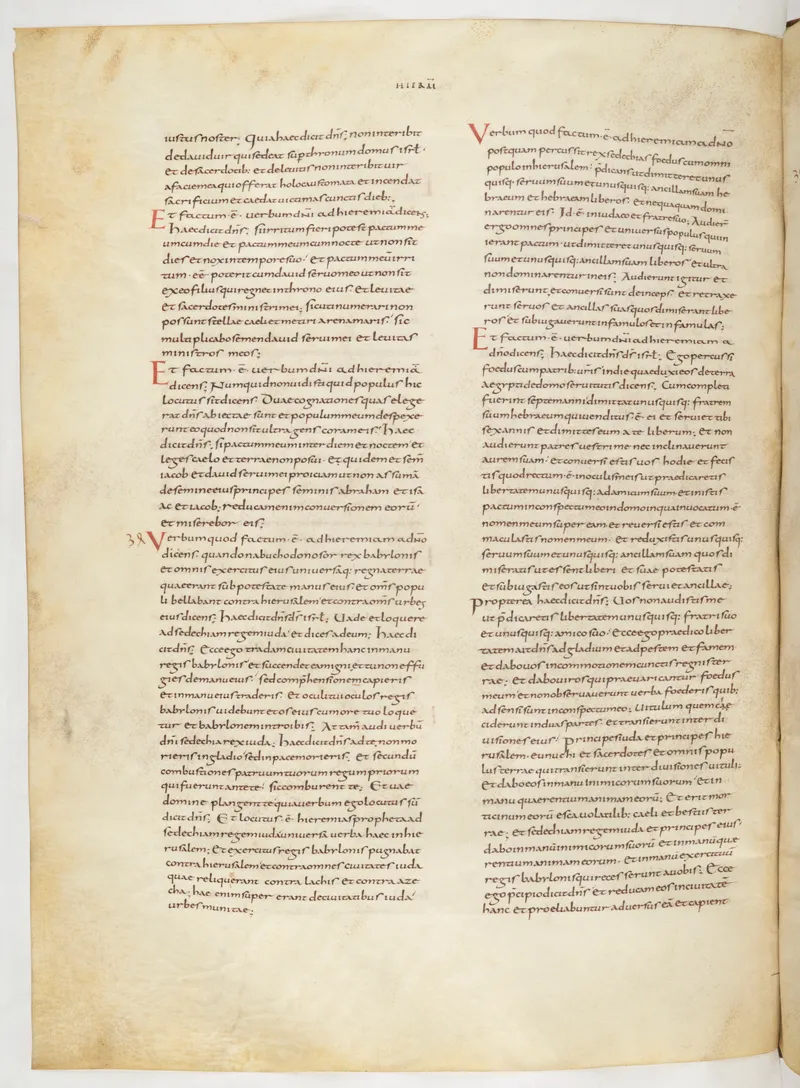 HIEREM
iustus noster; Quia haec dicit dns; non interibit
de dauid uir qui sedeat sup thronum domus isrl·
et de sacerdotib; et de leuitis non interibit uir
a facie mea qui offerat holocaustomata et incendat
sacrificium et caedat uictimas cunctis dieb;
Et factum ·ē· uerbum dni ad hieremiā dicens;
Haec dicit dns; si irritum fieri potest pactum me
um cum die et pactum meum cum nocte ut non sit
dies et nox in tempore suo· et pactum meū irri
tum ·eē· poterit cum dauid seruo meo ut non sit
ex eo filius qui regnet in throno eius et leuitae
et sacerdotes ministri mei; sicuti numerari non
possunt stellae caeli et metiri arena maris· sic
multiplicabo semen dauid serui mei et leuitas
ministros meos;
Et factum ·ē· uerbum dni ad hieremiā
dicens; Numquid non uidisti quid populus hic
locutus sit dicens; Duae cognationes quas elege
rat dns abiectae sunt et populum meum despexe
runt eo quod non sit ultra gens coram eis· Haec
dicit dns; si pactum meum inter diem et noctem et
leges caelo et terrae non posui· et quidem et sem
iacob et dauid serui mei proiciam ut non assumā
de semine eius principes seminis abraham et isa
ac et iacob; reducam enim conuersionem eorū·
et miserebor eis;
Verbum quod factum ·ē· ad hieremiam a dno
dicens; quando nabuchodonosor rex babylonis
et omnis exercitus eius uniuersaq; regna terrae
quae erant sub potestate manus eius et oms popu
li bellabant contra hierusalem et contra oms urbes
eius dicens; Haec dicit dns ds isrl; Uade et loquere
ad sedechiam regem iuda· et dices ad eum; Haec di
cit dns; Ecce ego tradam ciuitatem hanc in manu
regis babylonis et succendet eam igni et tu non effu
gies de manu eius· sed comphensione capieris
et in manu eius traderis· Et oculi tui oculos regis
babylonis uidebunt et os eius cum ore tuo loque
tur et babylonem introibis; Attam audi uerbū
dni sedechia rex iuda; Haec dicit dns ad te non mo
rieris in gladio sed in pace morieris· et secundū
combustiones patruum tuorum regum priorum
qui fuerunt ante te· sic comburent te; Et uae
domine plangent te quia uerbum ego locutus sū
dicit dns; Et locutus ·ē· hieremias propheta ad
sedechiam regem iuda uniuersa uerba haec in hie
rusalem; et exercitus regis babylonis pugnabat
contra hierusalem et contra omnes ciuitates iuda
quae reliquerant contra lachis et contra aze
cha; hae enim supererant de ciuitatibus iuda·
urbes munitae;
Verbum quod factum ·ē· ad hieremiam a dno
postquam percussit rex sedechias foedus cum omni
populo in hierusalem· pdicans ut dimitteret unus
quisq; seruum suum et unusquisq; ancillam suam he
braeum et hebraeam liberos· et nequaquam domi
narentur eis· Id ·ē· in iudaeo et fratre suo; Audier
ergo omnes principes et uniuersus populus qui in
ierant pactum· ut dimitteret unusquisq; seruum
suum et unusquisq; ancillam suam liberos· et ultra
non dominarentur in eis; Audierunt igitur et
dimiserunt· et conuersi sunt deinceps· et retraxe
runt seruos et ancillas suas quos dimiserant libe
ros et subiugauerunt in famulos et in famulas;
Et factum ·ē· uerbum dni ad hieremiam a
dno dicens; Haec dicit dns ds isrl; Ego percussi
foedus cum patrib; uris in die qua eduxi eos de terra
Aegypti de domo seruitutis dicens; Cum completi
fuerint septem anni dimittat unusquisq; fratrem
suum hebraeum qui uenditus ·ē· ei et seruiet tibi
sex annis et dimittes eum a te liberum; et non
audierunt patres uestri me nec inclinauerunt
aurem suam· et conuersi estis uos hodie et fecis
tis quod rectum ·ē· in oculis meis ut praedicaretis
libertatem unusquisq; ad amicum suum et inistis
pactum in conspectu meo in domo in qua inuocatum ·ē·
nomen meum super eam et reuersi estis et com
maculastis nomen meum· et reduxistis unusquisq;
seruum suum et unusquisq; ancillam suam quos di
miseratis ut essent liberi et suae potestatis
et subiugastis eos ut sint uobis serui et ancillae;
Propterea haec dicit dns; Uos non audistis me
ut pdicaretis libertatem unusquisq; fratri suo
et unusquisq; amico suo· Ecce ego praedico liber
tatem ait dns ad gladium et ad pestem et famem
et dabo uos in commotionem cunctis regnis ter
rae· et dabo uiros qui praeuaricantur foedus
meum et non obseruauerunt uerba foederis quib;
adsensi sunt in conspectu meo; Uitulum quem ca
ciderunt in duas partes et transierunt inter di
uisiones eius· Principes iuda et principes hie
rusalem· eunuchi et sacerdotes et omnis popu
lus terrae qui transierunt inter diuisiones uituli;
et dabo eos in manu inimicorum suorum· et in
manu quaerentium animam eorū; Et erit mor
ticinum eorū esca uolatilib; caeli et bestiis ter
rae· et sedechiam regem iuda et principes eius·
dabo in manu inimicorum suorū et in manu quae
rentium animam eorum· et in manu exercituū
regis babylonis qui recesserunt a uobis; Ecce
ego pcipio dicit dns· et reducam eos in ciuitatē
hanc et proeliabuntur aduersus eā et capient